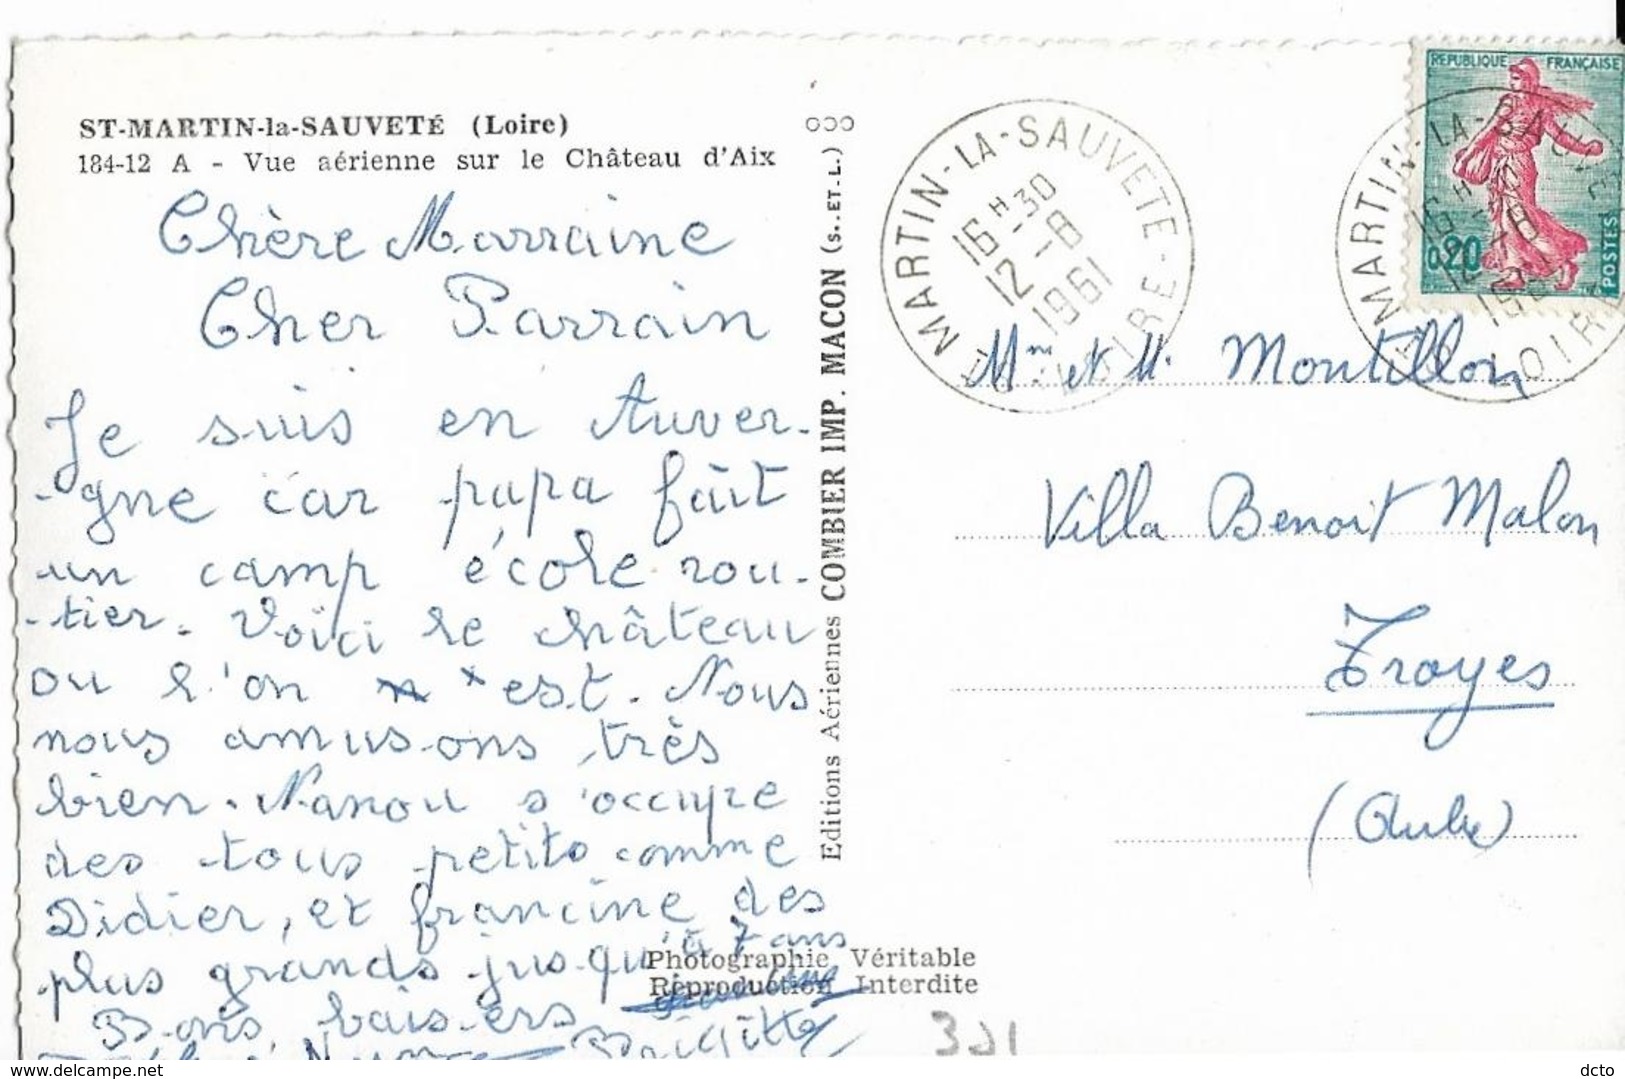 ST-MARTIN-la-SAUVETÉ (Loire)
184-12 A - Vue aérienne sur le Château d'Aix
Chère Marraine
Cher Parrain
Je suis en Auver-
-gne car papa fait
un camp école rou-
-tier. Voici le château
ou l'on est. Nous
nous amusons très
bien. Nanou s'occupe
des tous petits comme
Didier, et francine des
plus grands jusqu'à 7 ans
Bons baisers
Brigitte
Editions Aériennes COMBIER IMP. MACON (S.-ET-L.)
Photographie Véritable
Reproduction Interdite
ST MARTIN-LA-SAUVETE - LOIRE
16 H 30
12 - 8
1961
REPUBLIQUE FRANÇAISE
0,20
POSTES
MARTIN-LA-SAUVE
16 H
LOIRE
Mme et M. Montillon
Villa Benoit Malon
Troyes
(Aube)
321
www.delcampe.net
dcto